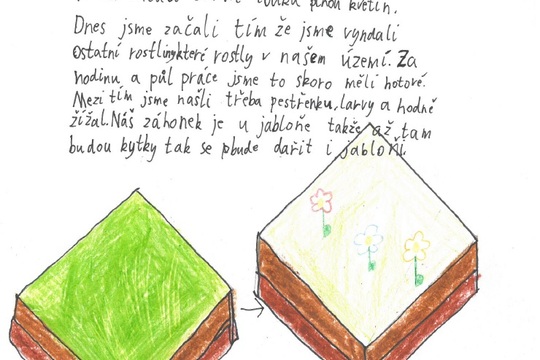 louka plnou květin.
Dnes jsme začali tím že jsme vyndali
ostatní rostliny které rostly v našem území. Za
hodinu a půl práce jsme to skoro měli hotové.
Mezi tím jsme našli třeba pestřenku, larvy a hodně
žížal. Náš záhonek je u jabloňe takže až tam
budou kytky tak se pbude dařit i jabloňi.